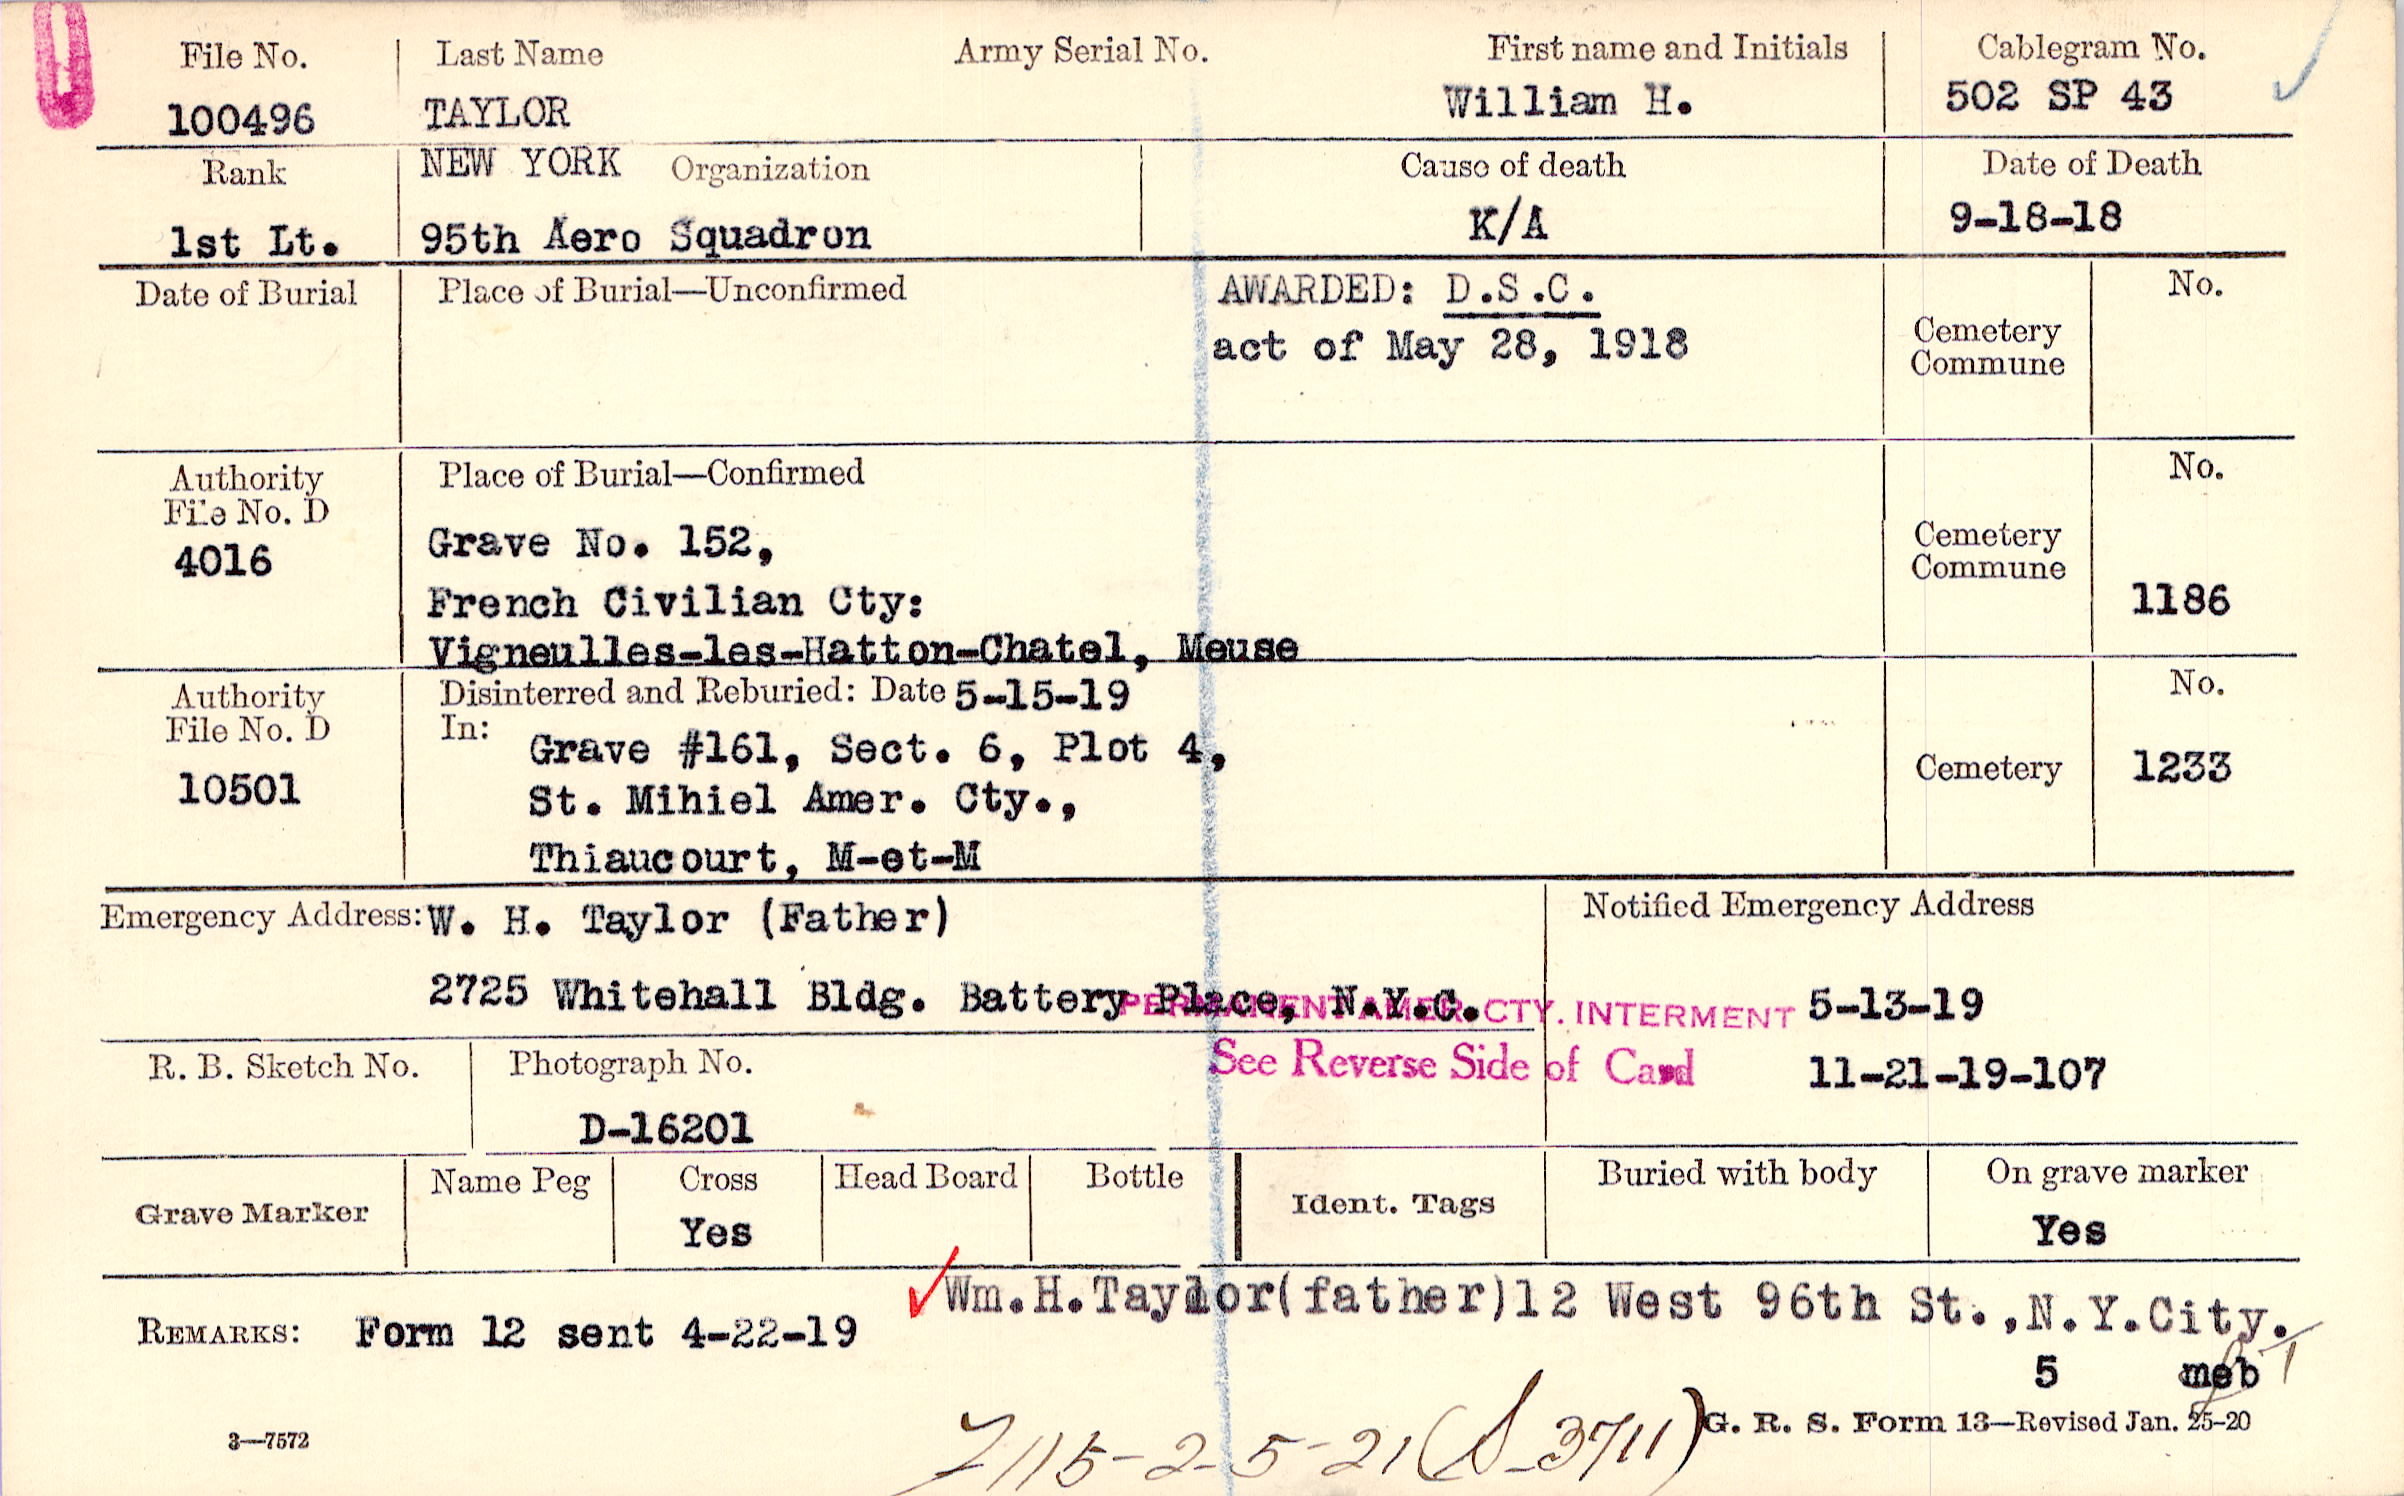 File No. Last Name Army Serial No. First name and Initials Cablegram No.
100496 TAYLOR William H. 502 SP 43
Rank NEW YORK Organization Cause of death Date of Death
1st Lt. 95th Aero Squadron K/A 9-18-18
Date of Burial Place of Burial—Unconfirmed AWARDED: D.S.C. No.
act of May 28, 1918 Cemetery
Commune
Authority Place of Burial—Confirmed No.
File No. D
4016 Grave No. 152, Cemetery
Commune
French Civilian Cty: 1186
Vigneulles-les-Hatton-Chatel, Meuse
Authority Disinterred and Reburied: Date 5-15-19 No.
File No. D In:
Grave #161, Sect. 6, Plot 4,
10501 St. Mihiel Amer. Cty., Cemetery 1233
Thiaucourt, M-et-M
Emergency Address: W. H. Taylor (Father) Notified Emergency Address
2725 Whitehall Bldg. Battery Place, N.Y.C. 5-13-19
PERMANENT AMER. CTY. INTERMENT
See Reverse Side of Card 11-21-19-107
R. B. Sketch No. Photograph No.
D-16201
Grave Marker Name Peg Cross Head Board Bottle Ident. Tags Buried with body On grave marker
Yes Yes
Wm.H.Taylor(father)12 West 96th St.,N.Y.City.
REMARKS: Form 12 sent 4-22-19
5 meb
3—7572 G. R. S. Form 13—Revised Jan. 25-20
115-2-5-21 3711)